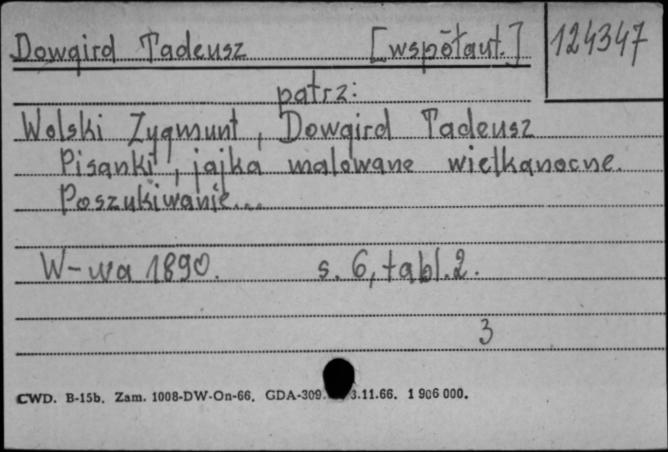 Dowgird Tadeusz [współaut.] 124347
patrz:
Wolski Zygmunt, Dowgird Tadeusz
Pisanki, jajka malowane wielkanocne.
Poszukiwanie...
W-wa 1890. s. 6, tabl. 2.
3
CWD. B-15b. Zam. 1008-DW-On-66. GDA-309. 3.11.66. 1 906 000.